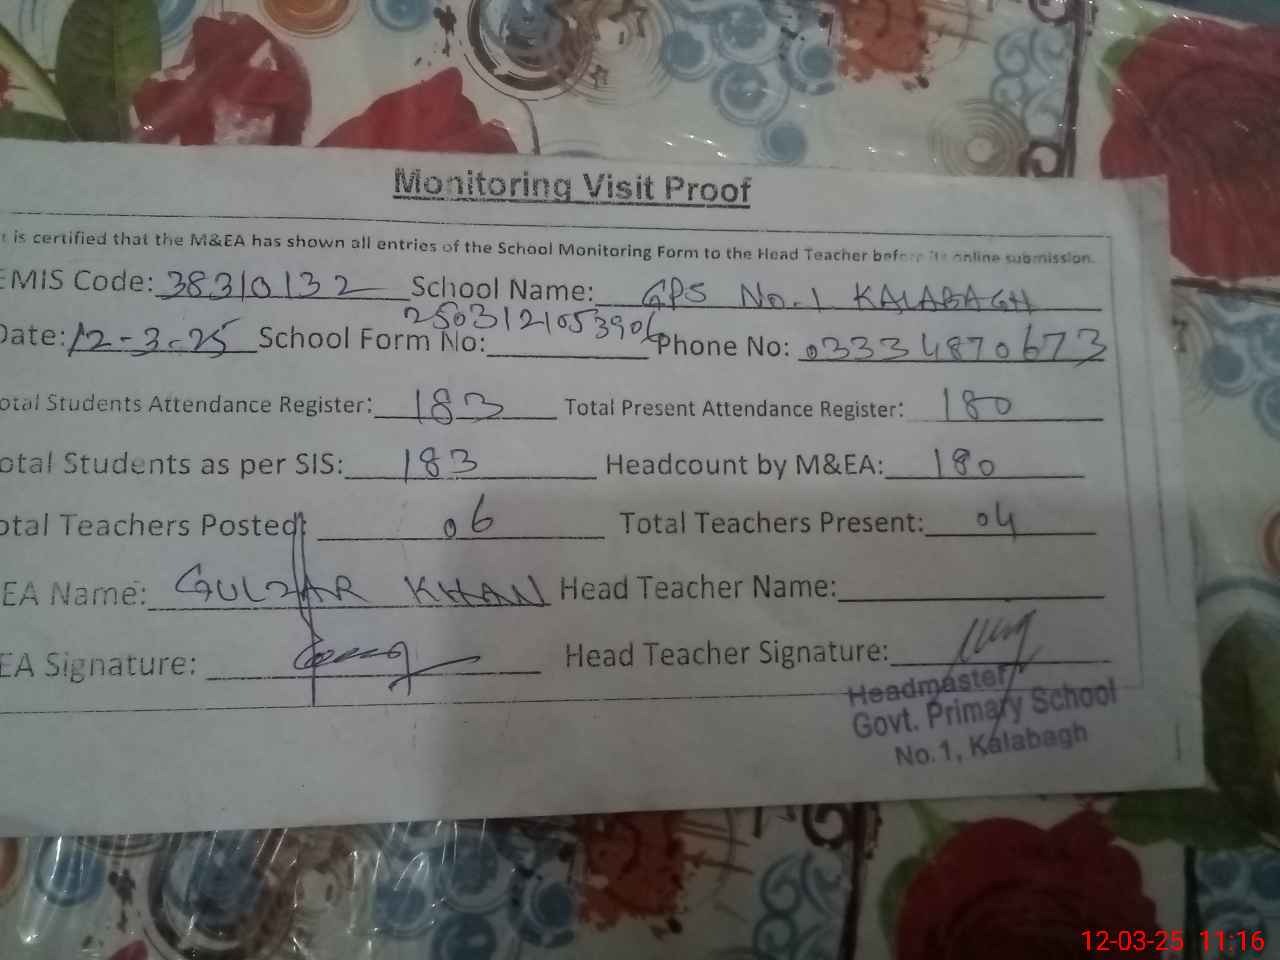 Monitoring Visit Proof
t is certified that the M&EA has shown all entries of the School Monitoring Form to the Head Teacher before its online submission.
EMIS Code: 38310132 School Name: GPS No. 1 KALABAGH
Date: 12-3-25 School Form No: 2503121053906 Phone No: 03334870673
otal Students Attendance Register: 183 Total Present Attendance Register: 180
otal Students as per SIS: 183 Headcount by M&EA: 180
otal Teachers Posted: 06 Total Teachers Present: 04
EA Name: GULZAR KHAN Head Teacher Name:
EA Signature: Head Teacher Signature:
Headmaster
Govt. Primary School
No. 1, Kalabagh
12-03-25 11:16